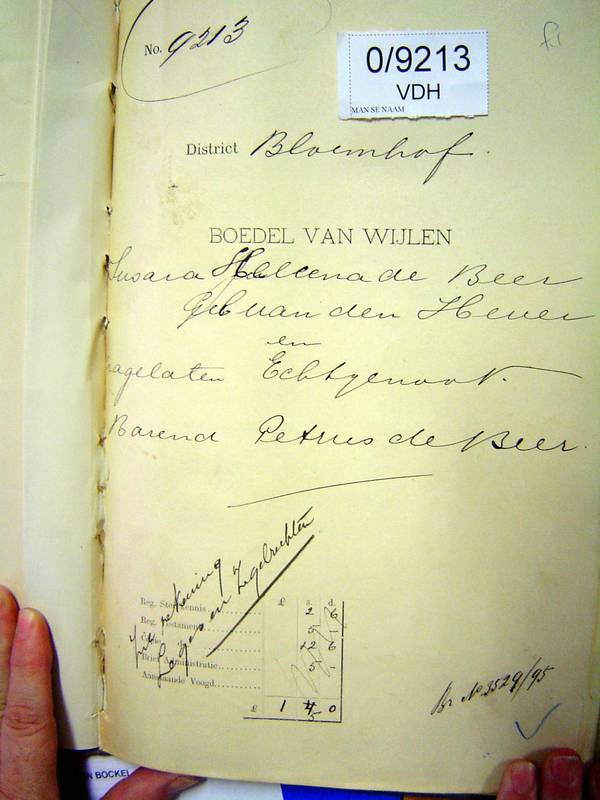 No. 9213
f.1
0/9213
VDH
MAN SE NAAM
District Bloemhof.
BOEDEL VAN WIJLEN
Susara Helena de Beer
geb van den Hever
en
nagelaten Echtgenoot.
Barend Petrus de Beer.
rekening
Leges en Zegelrechten
£ s. d.
Reg. Sterfkennis
Reg. Testament
Brief Administratie
Aanstaande Voogd
£ 1
0
Br No 3529/95
N BOCKEL